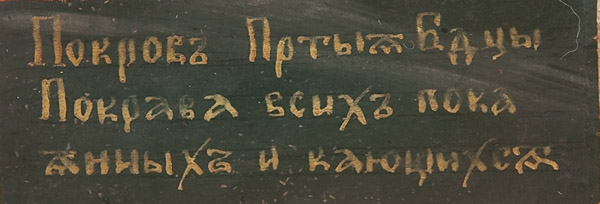 Покровъ Пртыѧ Бдцы
Покрава всихъ пока
ѧнныхъ и кающихсѧ